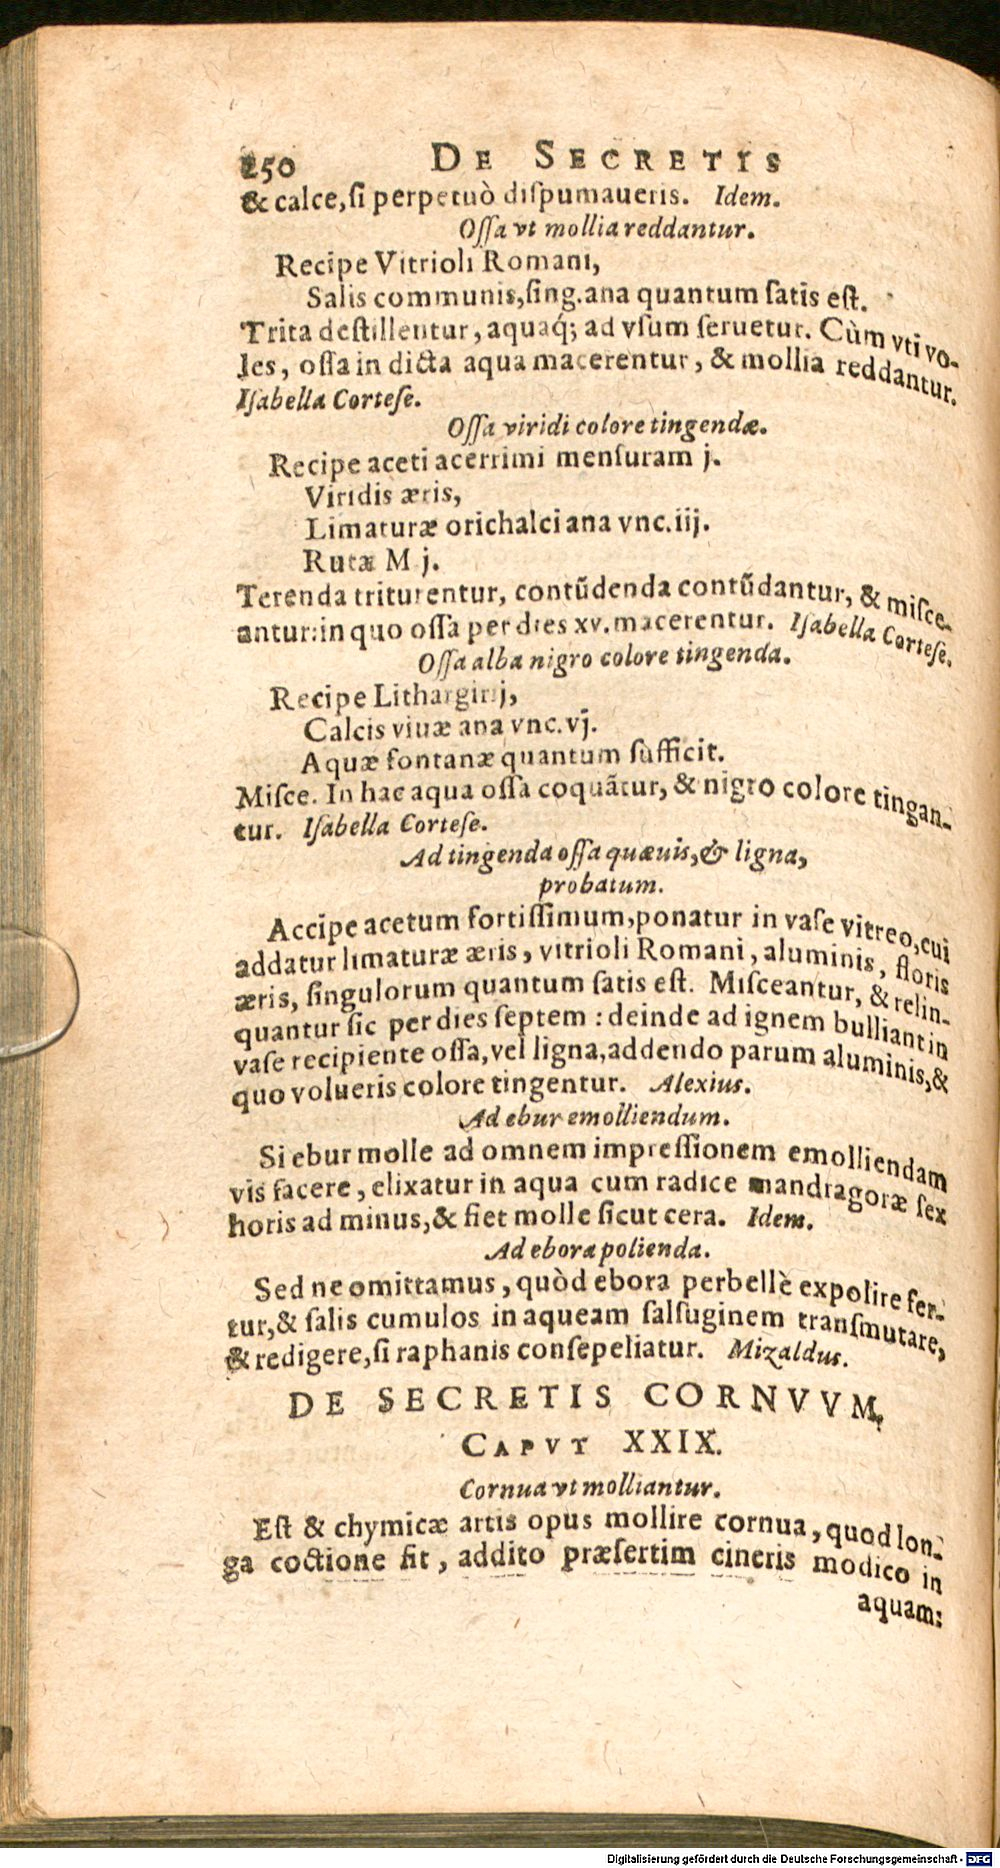 250 DE SECRETIS
& calce, ſi perpetuò diſpumaueris. Idem.
Oſſa vt mollia reddantur.
Recipe Vitrioli Romani,
Salis communis, ſing. ana quantum ſatis eſt.
Trita deſtillentur, aquaq́; ad vſum ſeruetur. Cùm vti vo-
les, oſſa in dicta aqua macerentur, & mollia reddantur.
Iſabella Corteſe.
Oſſa viridi colore tingendæ.
Recipe aceti acerrimi menſuram j.
Viridis æris,
Limaturæ orichalci ana vnc. iij.
Rutæ M j.
Terenda triturentur, contũdenda contũdantur, & miſce-
antur: in quo oſſa per dies xv. macerentur. Iſabella Corteſe.
Oſſa alba nigro colore tingenda.
Recipe Lithargirij,
Calcis viuæ ana vnc. vj.
Aquæ fontanæ quantum ſufficit.
Miſce. In hac aqua oſſa coquãtur, & nigro colore tingan-
tur. Iſabella Corteſe.
Ad tingenda oſſa quæuis, & ligna,
probatum.
Accipe acetum fortiſſimum, ponatur in vaſe vitreo, cui
addatur limaturæ æris, vitrioli Romani, aluminis, floris
æris, ſingulorum quantum ſatis eſt. Miſceantur, & relin-
quantur ſic per dies ſeptem: deinde ad ignem bulliant in
vaſe recipiente oſſa, vel ligna, addendo parum aluminis, &
quo volueris colore tingentur. Alexius.
Ad ebur emolliendum.
Si ebur molle ad omnem impreſſionem emolliendam
vis facere, elixatur in aqua cum radice mandragoræ ſex
horis ad minus, & fiet molle ſicut cera. Idem.
Ad ebora polienda.
Sed ne omittamus, quòd ebora perbellè expolire fer-
tur, & ſalis cumulos in aqueam ſalſuginem tranſmutare,
& redigere, ſi raphanis conſepeliatur. Mizaldus.
DE SECRETIS CORNVVM,
CAPVT XXIX.
Cornua vt molliantur.
Eſt & chymicæ artis opus mollire cornua, quod lon-
ga coctione fit, addito præſertim cineris modico in
aquam:
Digitalisierung gefördert durch die Deutsche Forschungsgemeinschaft - DFG